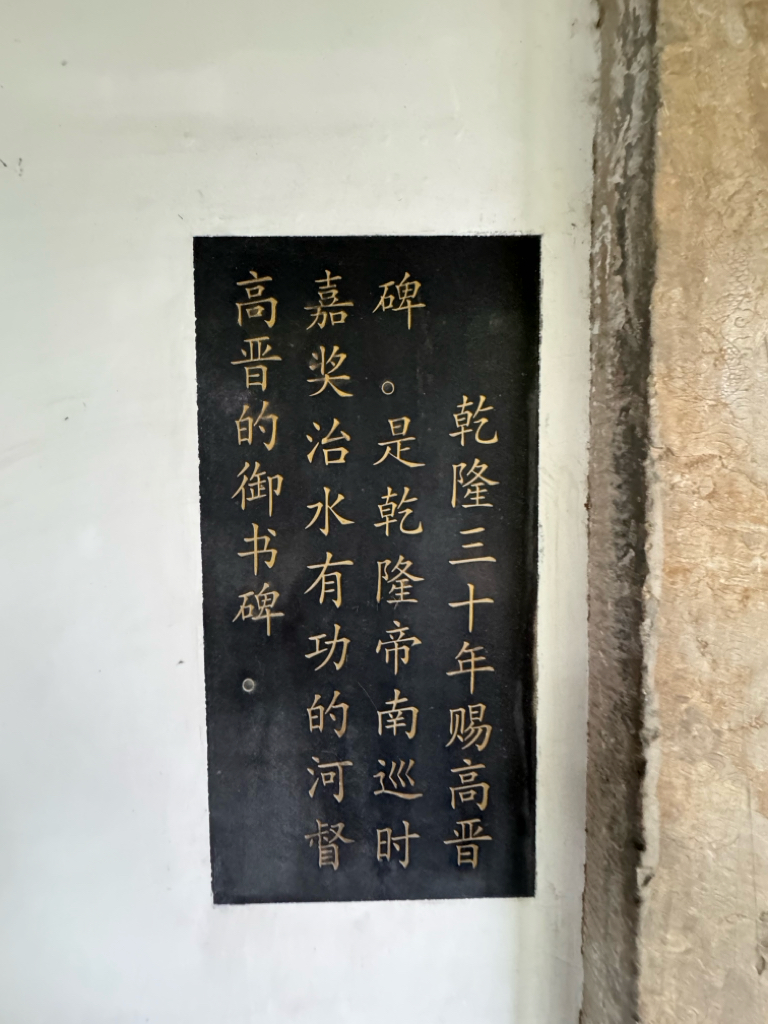 乾隆三十年赐高晋
碑。是乾隆帝南巡时
嘉奖治水有功的河督
高晋的御书碑。